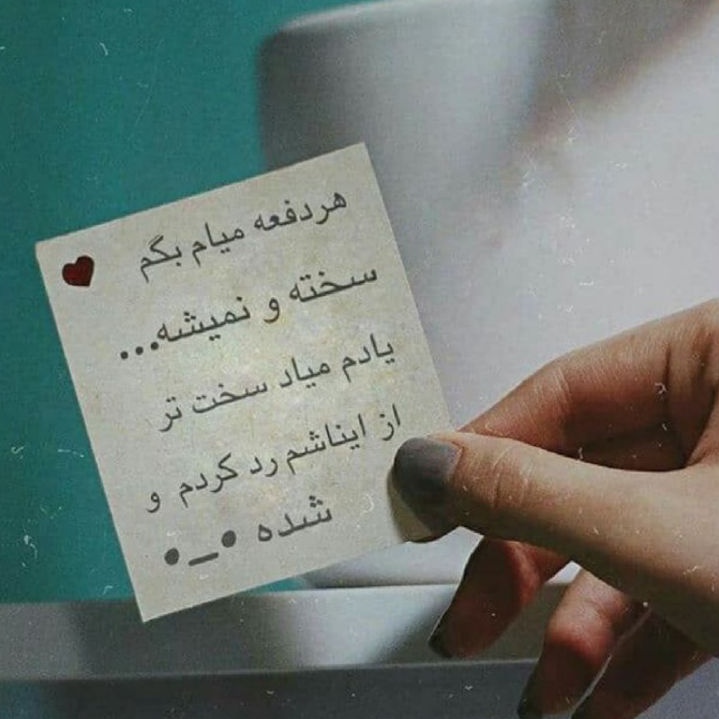 هردفعه میام بگم
سخته و نمیشه...
یادم میاد سخت تر
از ایناشم رد کردم و
شده •_•